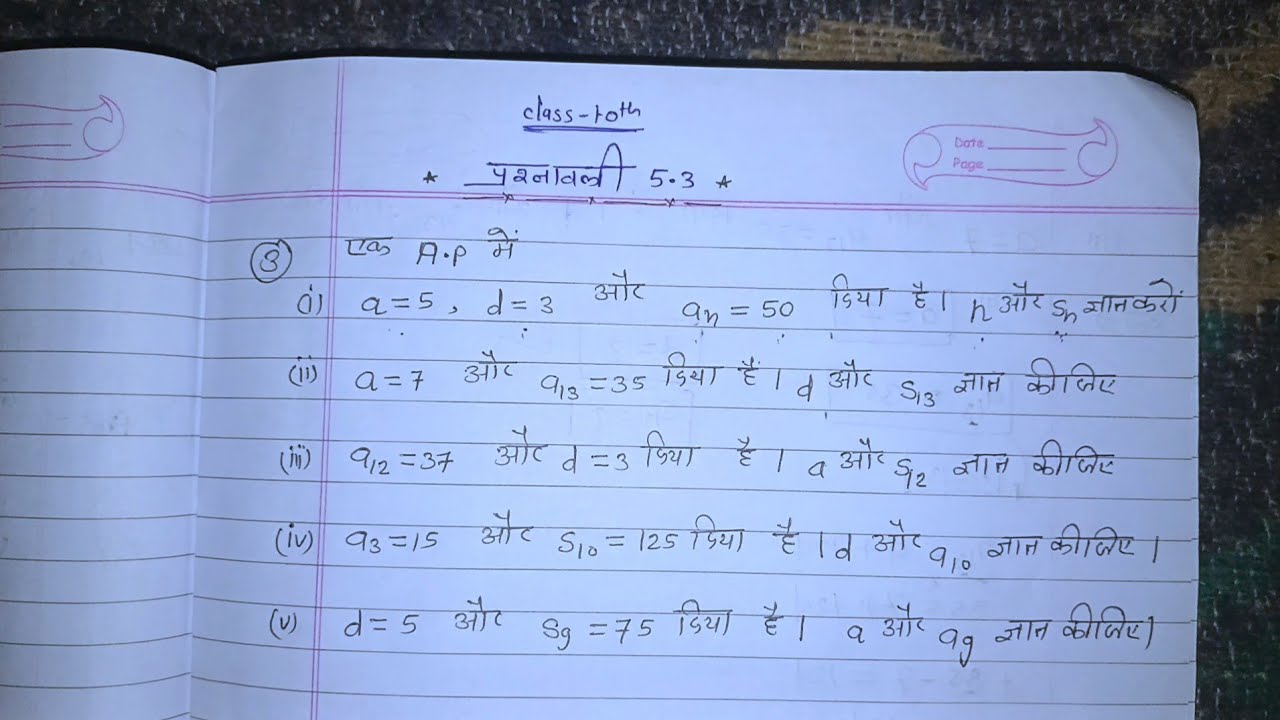 class-10th
Date
Page
* प्रश्नावली 5.3 *
③ एक A.P में
(i) a=5, d=3 और aₙ=50 दिया है। n और Sₙ ज्ञान करों
(ii) a=7 और a₁₃=35 दिया हैं। d और S₁₃ ज्ञान कीजिए
(iii) a₁₂=37 और d=3 दिया है। a और S₁₂ ज्ञान कीजिए
(iv) a₃=15 और S₁₀=125 दिया है। d और a₁₀ ज्ञान कीजिए।
(v) d=5 और S₉=75 दिया है। a और a₉ ज्ञान कीजिए।